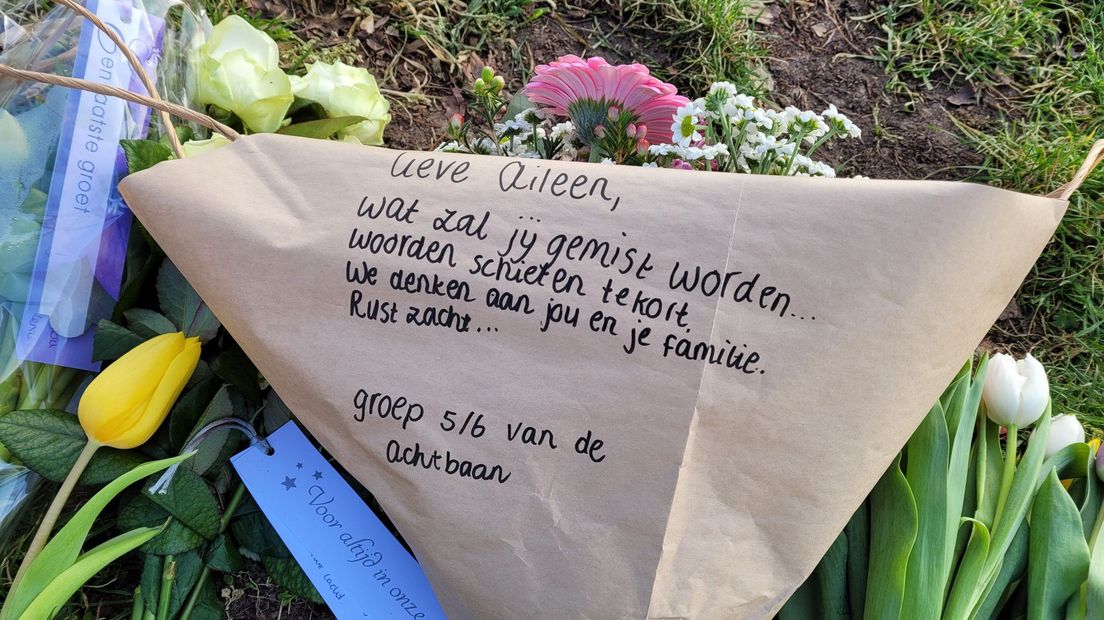 Lieve Aileen,
wat zal jij gemist worden...
woorden schieten tekort.
We denken aan jou en je familie.
Rust zacht...
groep 5/6 van de
Achtbaan
Een laatste groet
Voor altijd in onze